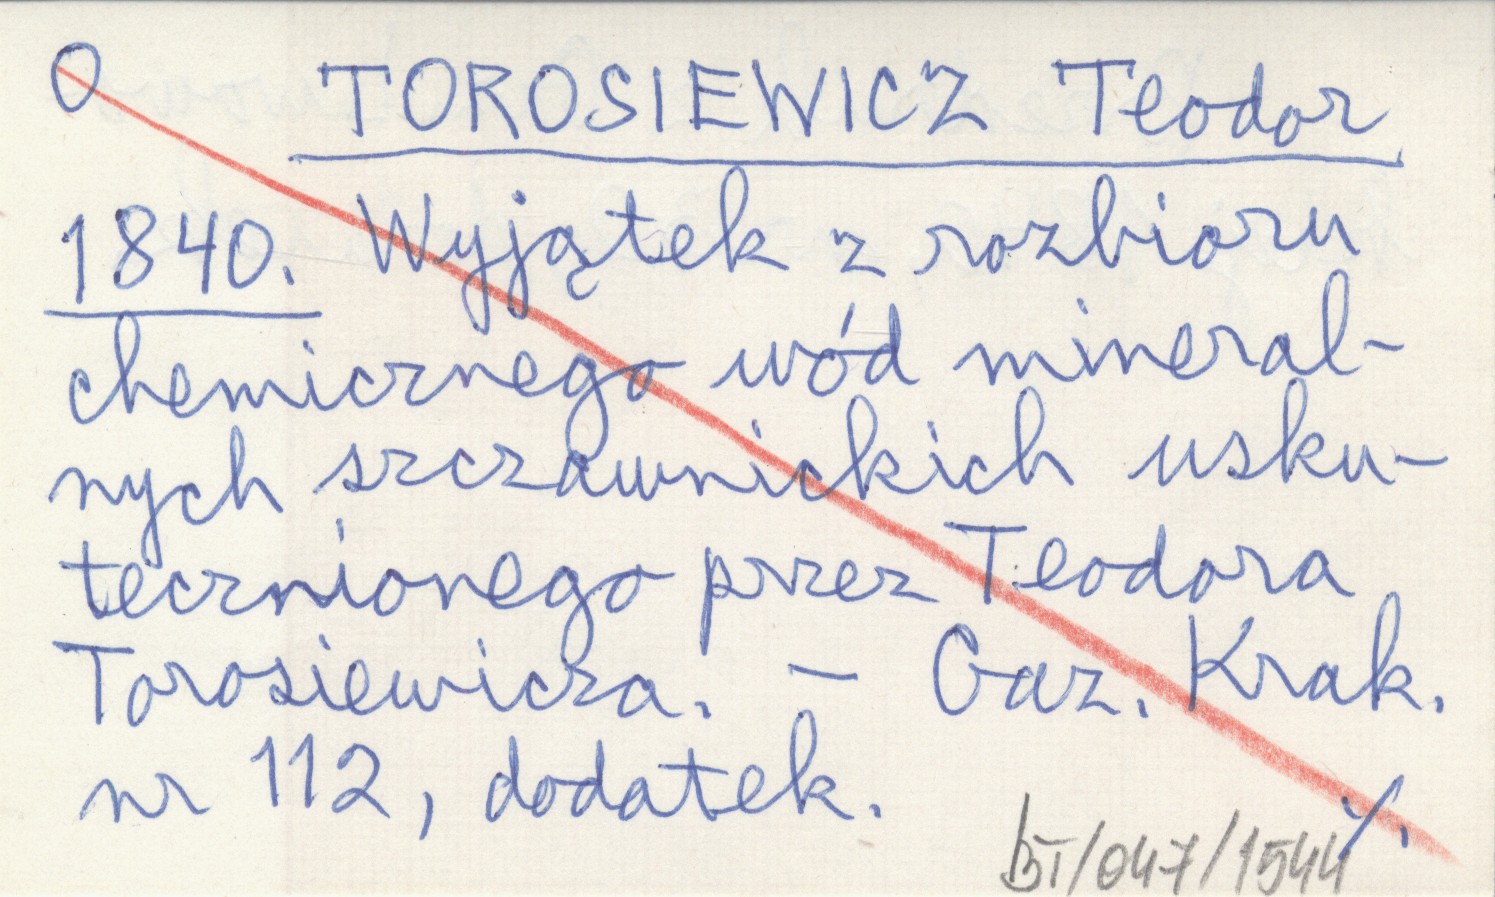 O TOROSIEWICZ Teodor
1840. Wyjątek z rozbioru
chemicznego wód mineral-
nych szczawnickich usku-
tecznionego przez Teodora
Torosiewicza. – Gaz. Krak.
nr 112, dodatek.
./.
BI/047/1544